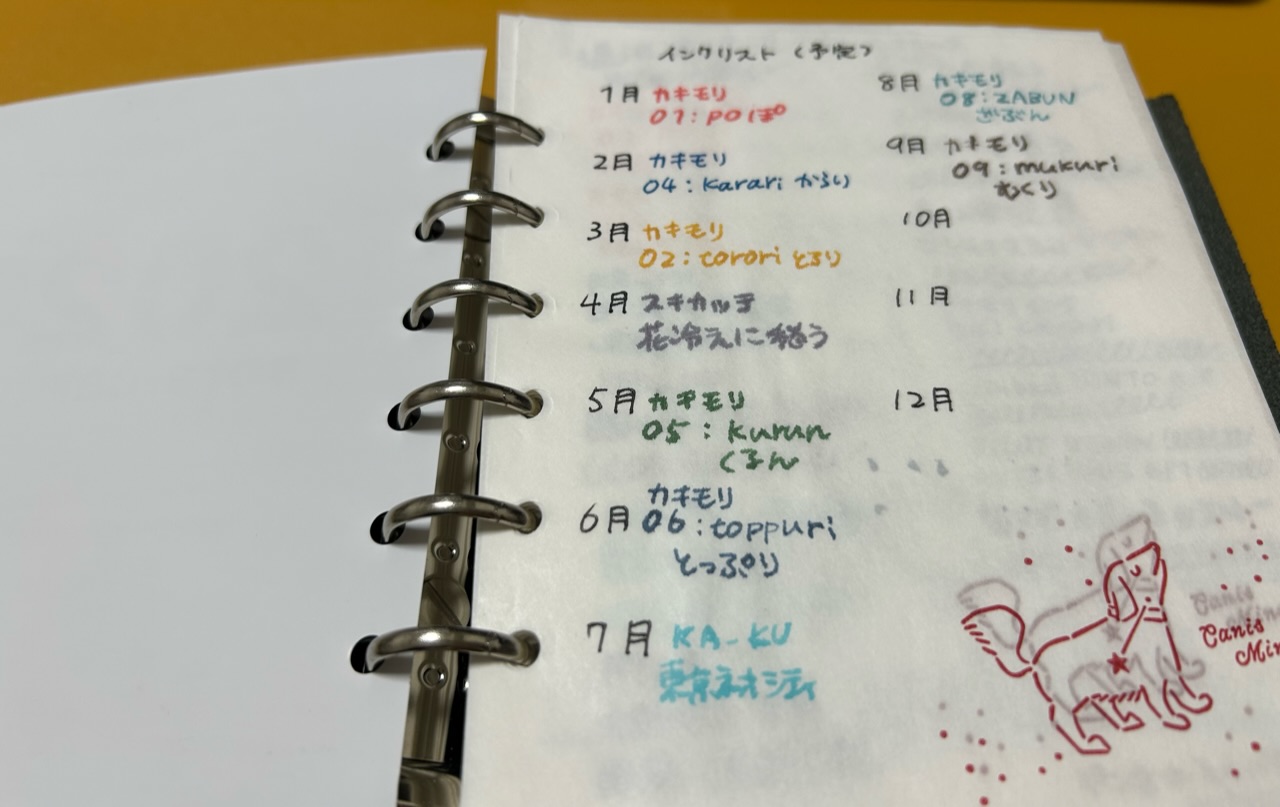 インクリスト (予定)
1月 カキモリ
01: po ぽ
2月 カキモリ
04: karari からり
3月 カキモリ
02: torori とろり
4月 スキカッテ
花冷えに移う
5月 カキモリ
05: kurun
くるん
カキモリ
6月 06: toppuri
とっぷり
7月 KA-KU
東京ネオシティ
8月 カキモリ
08: ZABUN
ざぶん
9月 カキモリ
09: mukuri
むくり
10月
11月
12月
Canis
Min